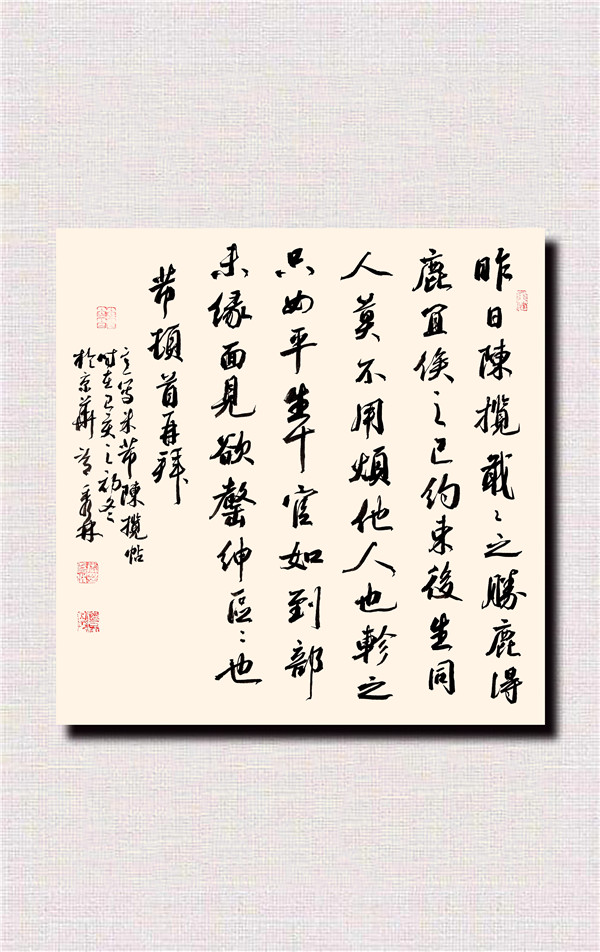 昨日陳攬戢〻之勝鹿得
鹿宜俟之已約束後生同
人莫不用煩他人也軫之
只如平生干官如到部
未緣面見欲罄紳區〻也
芾頓首再拜
意写米芾陳攬帖
时在己亥之初冬
於京華